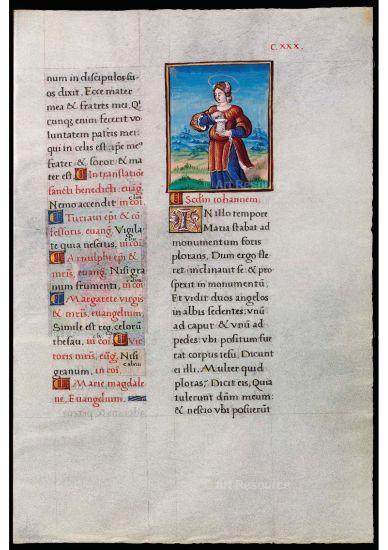 C. XXX.
num in discipulos su
os dixit. Ecce mater
mea & fratres mei. Qi
cunq; enim fecerit vo
luntatem patris mei:
qui in celis est. ipe meꝰ
frater & soror & ma
ter est. In translatione
sancti benedicti: euāg.
Nemo accendit in coi
Turiaui epi & cō
fessoris, euang. Vigila
te quia nescitis, in coi
Arnulphi epi &
mr̄is, euang. Nisi gra
num frumenti, in coi
Margarete virgis
& mr̄is, euangelium.
Simile est reg. celorū
thesau. in coi Vic
toris mr̄is: eug. Nisi
granum. in coi
Marie magdale
ne. Euangelium.
Secūn iohannem.
IN illo tempore
Maria stabat ad
monumentum foris
plorans, Dum ergo fle
ret: inclinauit se: & pro
spexit in monumentū.
Et vidit duos angelos
in albis sedentes: vnū
ad caput & vnū ad
pedes: vbi positum fue
rat corpus iesu. Dicunt
ei illi. Mulier quid
ploras? Dicit eis, Quia
tulerunt dn̄m meum:
& nescio vbi posuerūt
Art Resource
Art Resource